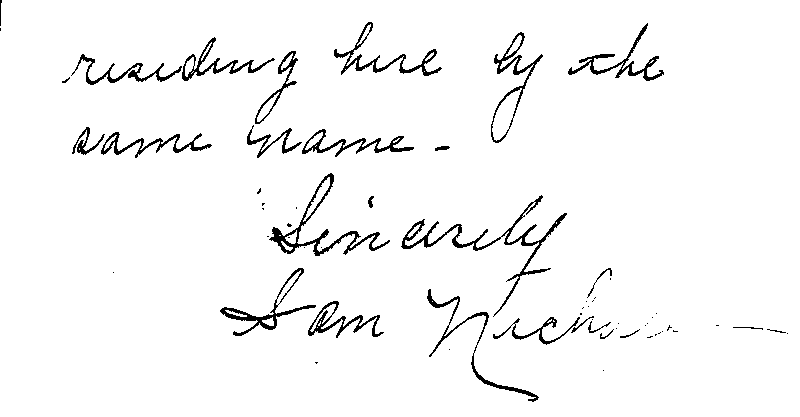 residing here by the
same name -
Sincerely
Sam